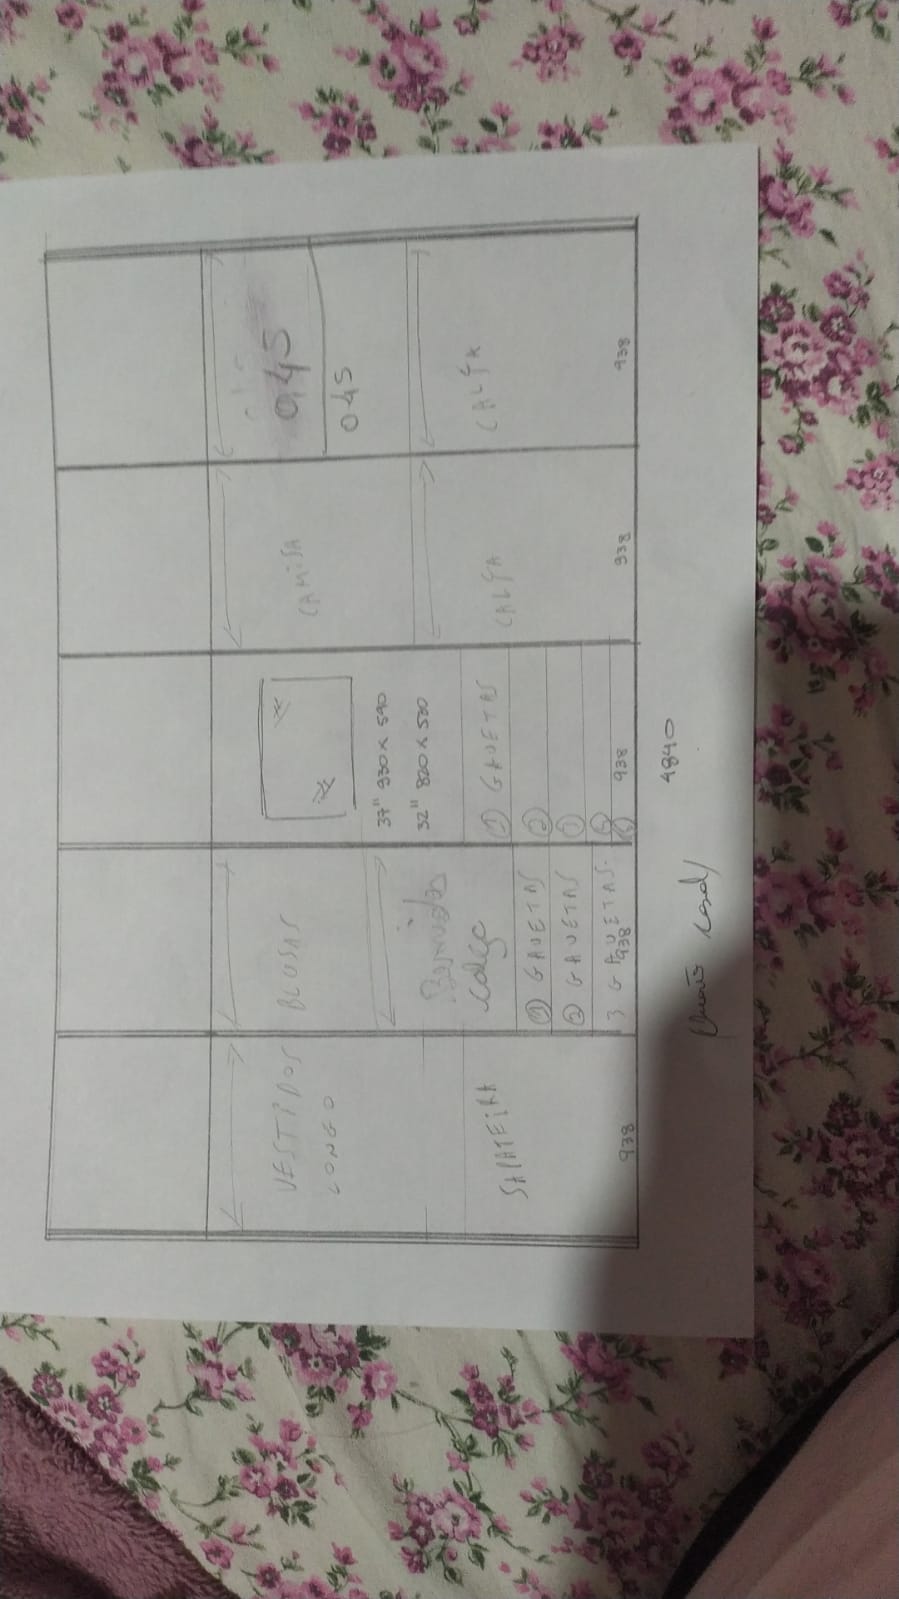 VESTIDOS
LONGO
SAPATEIRA
938
BLUSAS
Bermudas
calça
① GAVETAS
② GAVETAS
3 GAVETAS
938
37" 930 x 590
32" 820 x 530
① GAVETAS
②
938
CAMISA
CALÇA
938
0.45
045
CALÇA
938
4840